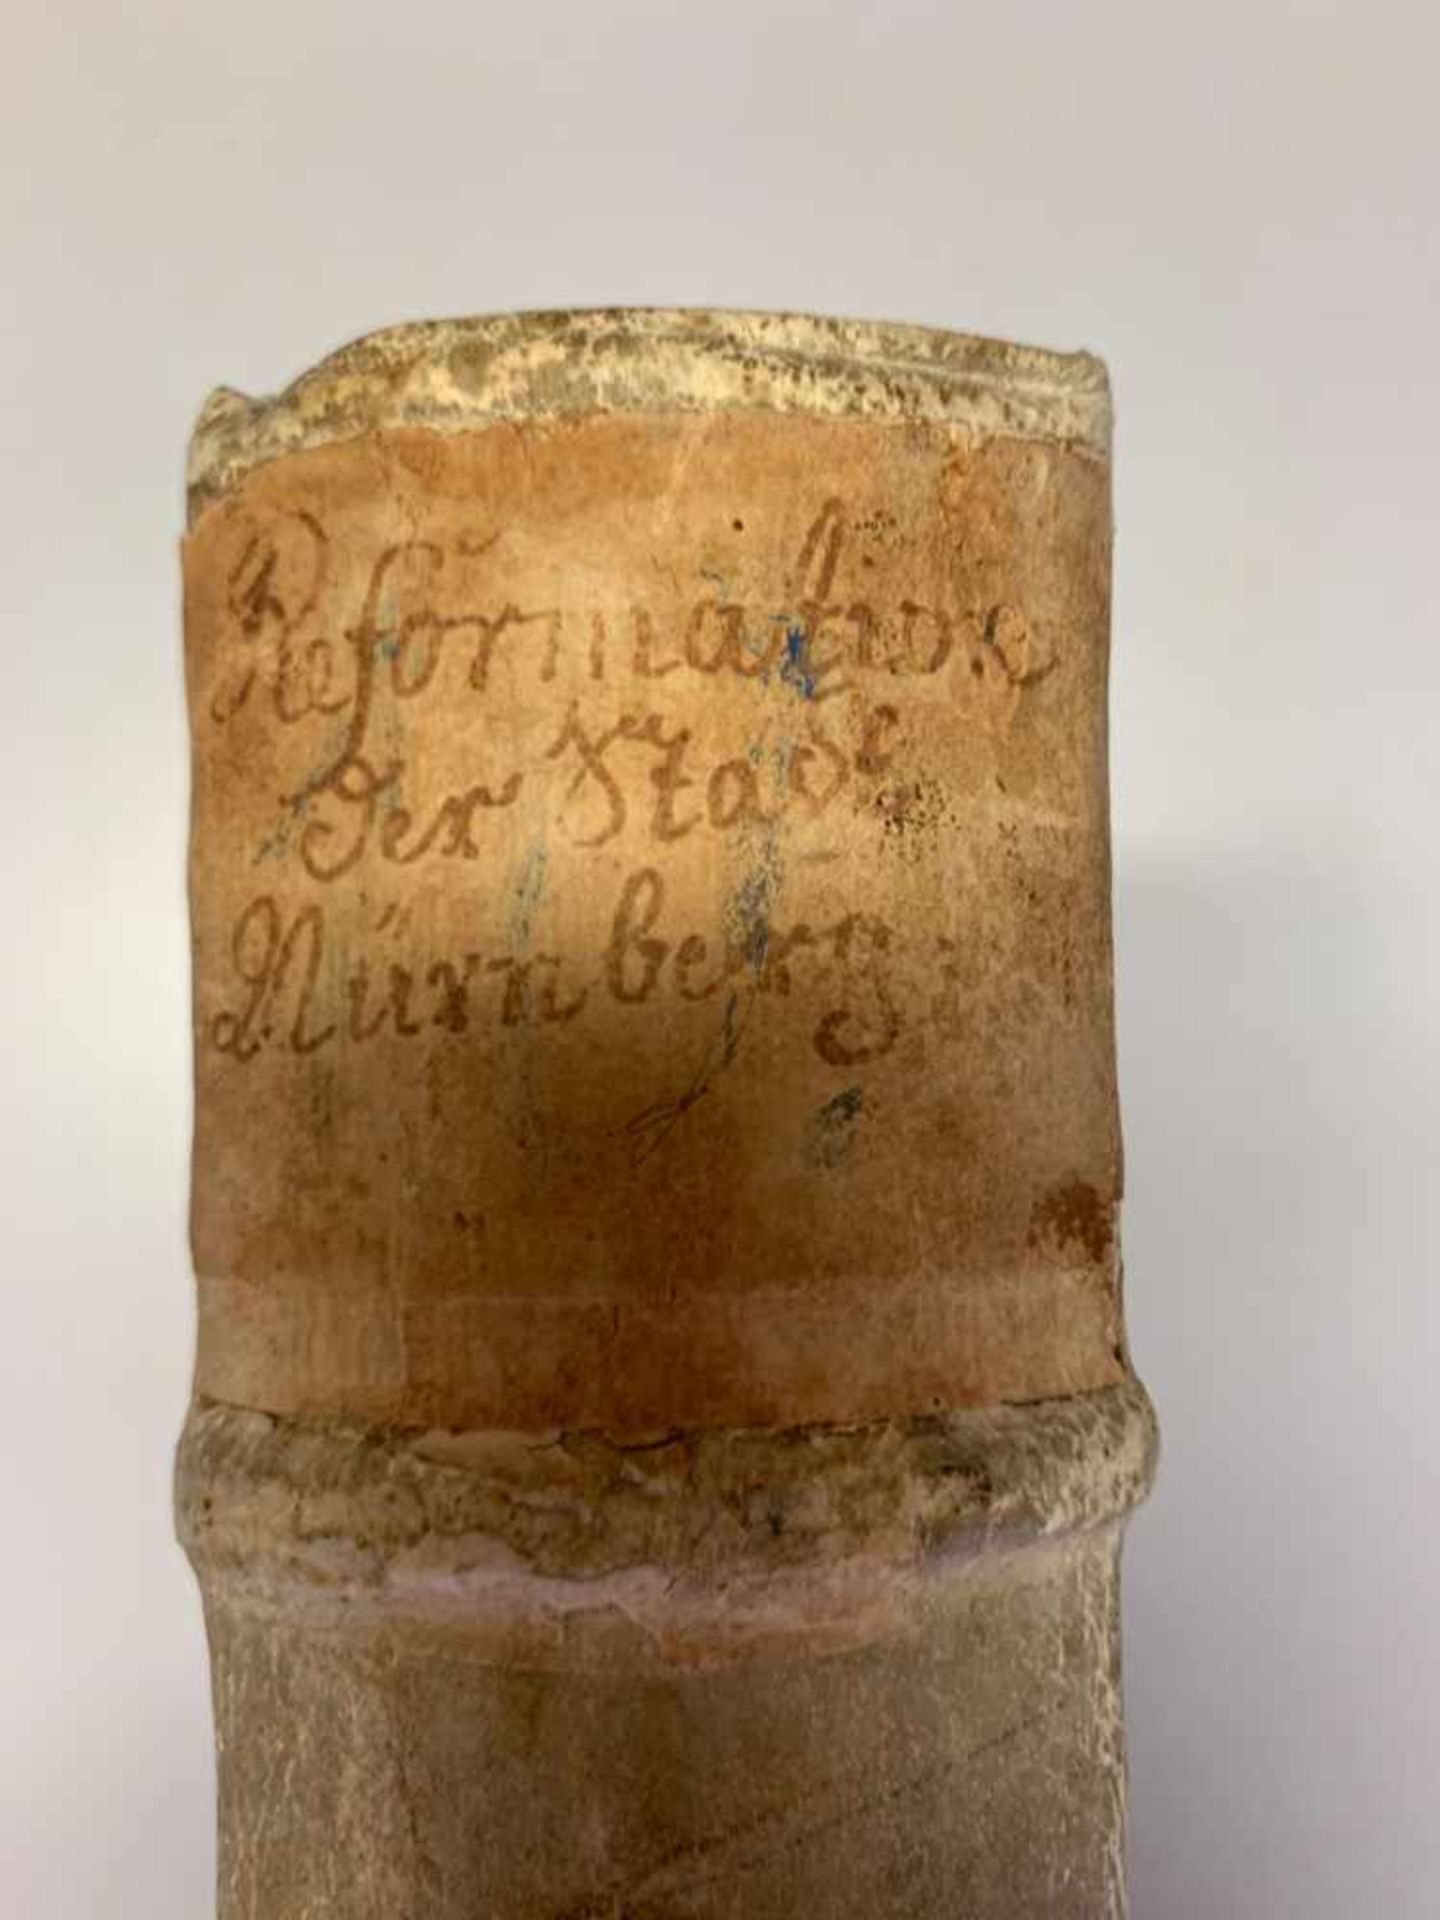 Reformation
der Stadt
Nürnberg.